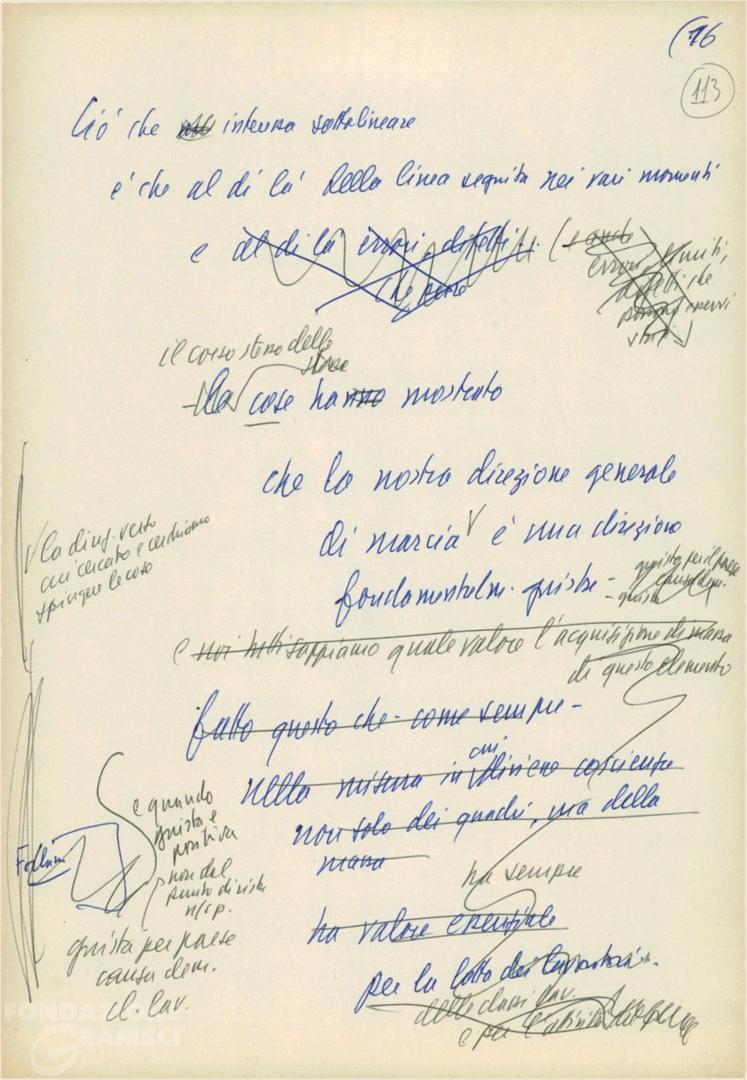 (16
113
Ciò che interessa sottolineare
è che al di là della linea seguita nei vari momenti
e al di là errori, difetti.. (e anche
errori, limiti,
difetti che
possono esservi
stati)
che pure
il corso stesso delle
stesse
cose hanno mostrato
che la nostra direzione generale
di marcia è una direzione
fondamentalm. giusta -
giusta per il paese
causa dem.
giusta
la direz. verso
cui cercato e cerchiamo
spingere le cose
e noi tutti sappiamo quale valore l'acquisizione di massa
di questo elemento
fatto questo che - come sempre -
nella misura in cui diviene coscienza
non solo dei quadri, ma della
massa
ha sempre
ha valore essenziale
per la lotta dei lavoratori.
delle classi lav.
e per l'attività
e quando
giusta e
positiva
non dal
punto di vista
n/s p.
giusta per paese
causa dem.
cl. lav.
FONDAZIONE
GRAMSCI